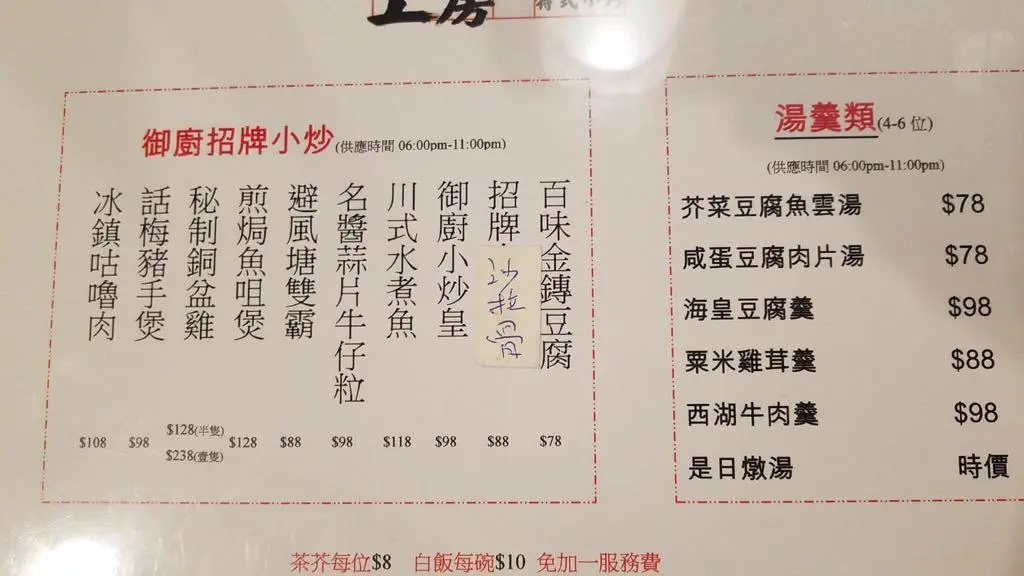 御廚招牌小炒(供應時間 06:00pm-11:00pm)
百味金鏄豆腐
$78
招牌沙拉骨
$88
御廚小炒皇
$98
川式水煮魚
$118
名醬蒜片牛仔粒
$98
避風塘雙霸
$88
煎焗魚咀煲
$128
秘制銅盆雞
$128(半隻)
$238(壹隻)
話梅豬手煲
$98
冰鎮咕嚕肉
$108
湯羹類(4-6 位)
(供應時間 06:00pm-11:00pm)
芥菜豆腐魚雲湯 $78
咸蛋豆腐肉片湯 $78
海皇豆腐羹 $98
粟米雞茸羹 $88
西湖牛肉羹 $98
是日燉湯 時價
茶芥每位$8 白飯每碗$10 免加一服務費